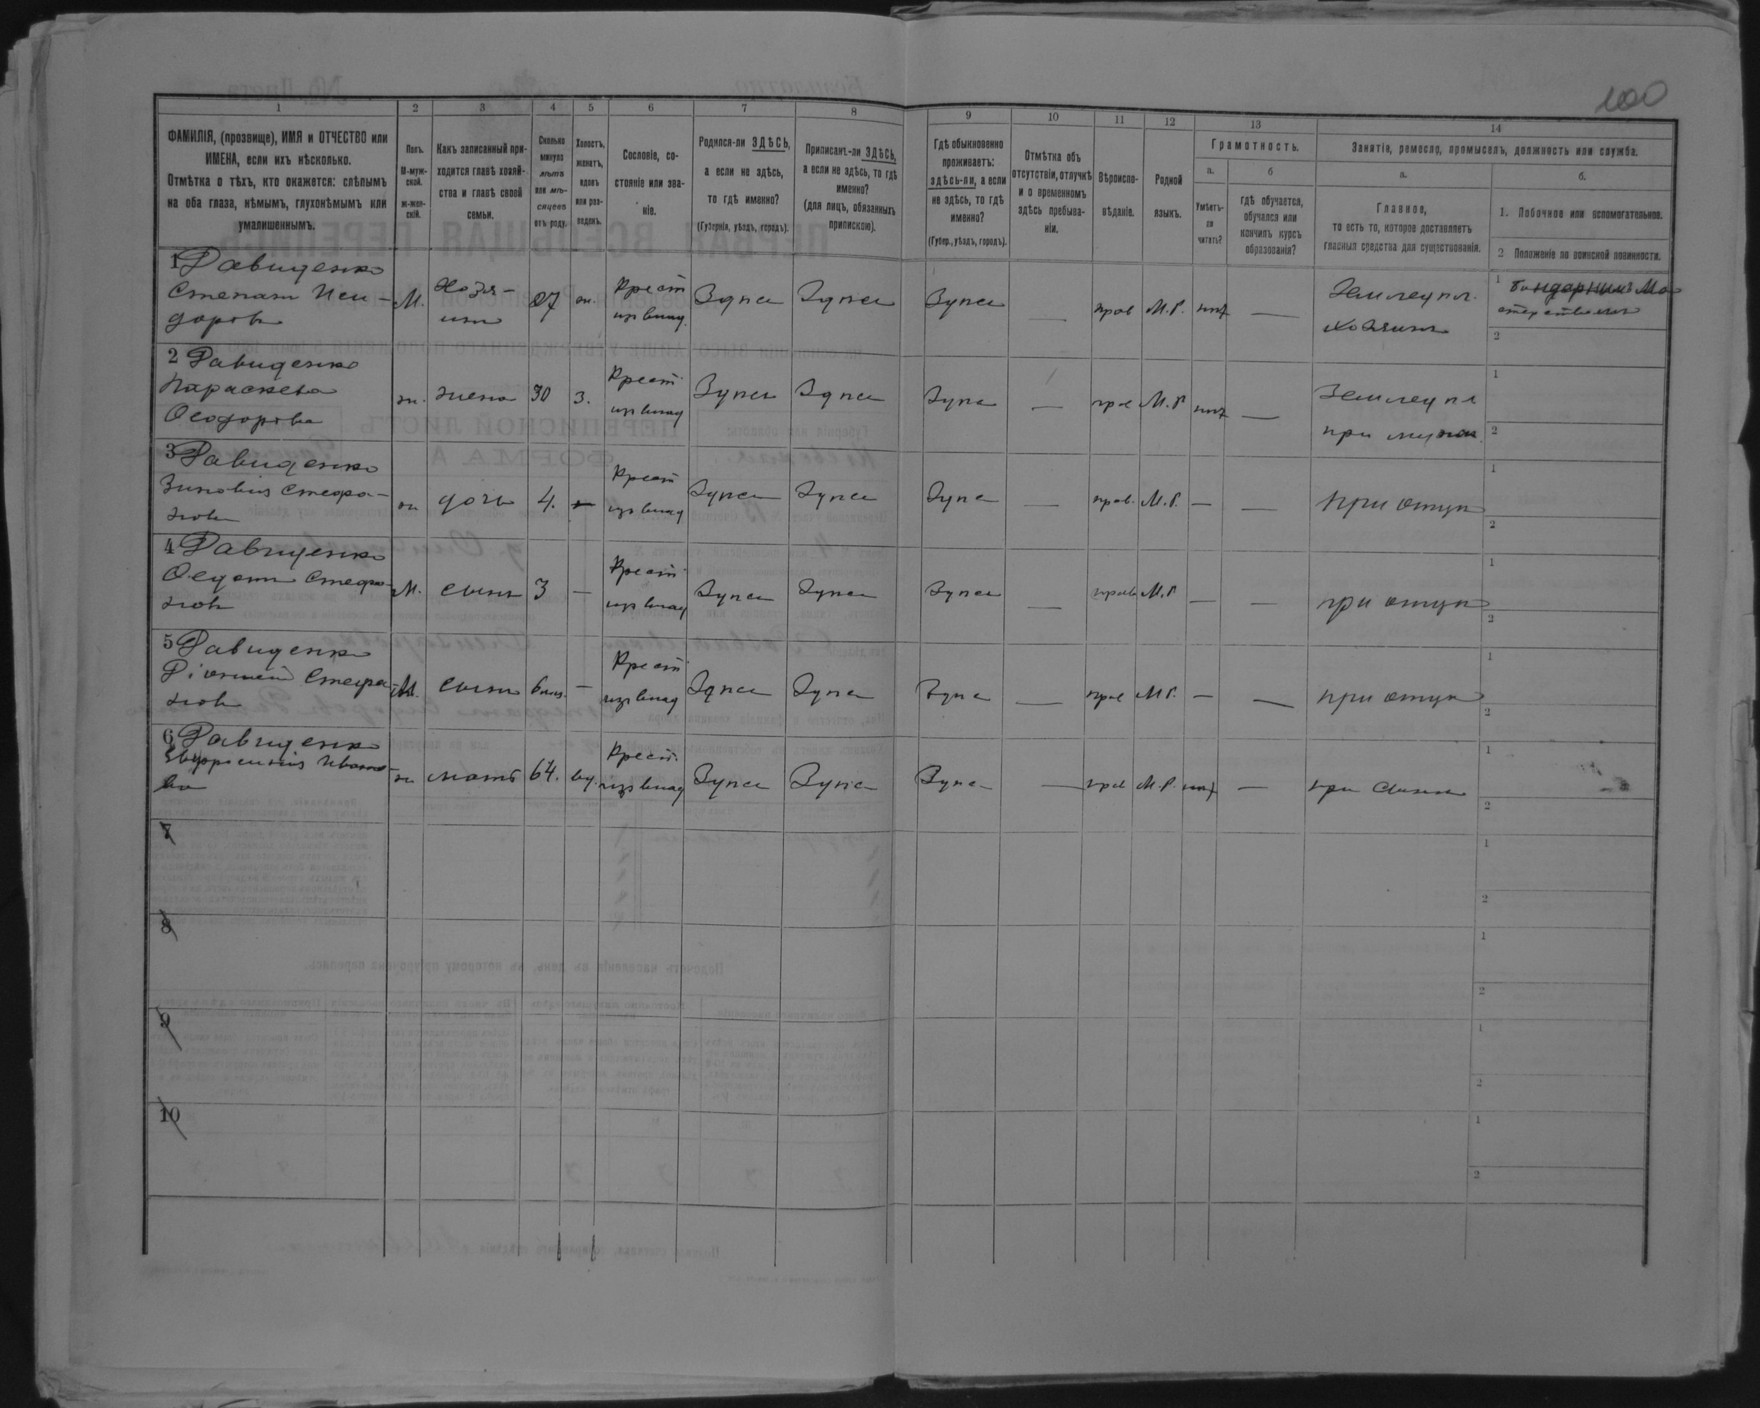 100
1 2 3 4 5 6 7 8 9 10 11 12 13 14
ФАМИЛІЯ, (прозвище), ИМЯ и ОТЧЕСТВО или
ИМЕНА, если ихъ нѣсколько.
Отмѣтка о тѣхъ, кто окажется: слѣпымъ
на оба глаза, нѣмымъ, глухонѣмымъ или
умалишеннымъ.
Полъ.
М-муж-
ской.
ж-жен-
скій.
Какъ записанный при-
ходится главѣ хозяй-
ства и главѣ своей
семьи.
Сколько
минуло
лѣтъ
или мѣ-
сяцевъ
отъ роду.
Холостъ,
женатъ,
вдовъ
или раз-
веденъ.
Сословіе, со-
стояніе или зва-
ніе.
Родился-ли ЗДѢСЬ,
а если не здѣсь,
то гдѣ именно?
(Губернія, уѣздъ, городъ).
Приписанъ-ли ЗДѢСЬ,
а если не здѣсь, то гдѣ
именно?
(для лицъ, обязанныхъ
припискою).
Гдѣ обыкновенно
проживаетъ:
здѣсь-ли, а если
не здѣсь, то гдѣ
именно?
(Губер., уѣздъ, городъ).
Отмѣтка объ
отсутствіи, отлучкѣ
и о временномъ
здѣсь пребыва-
ніи.
Вѣроиспо-
вѣданіе.
Родной
языкъ.
Грамотность.
а.
Умѣетъ-
ли
читать?
б
гдѣ обучается,
обучался или
кончилъ курсъ
образованія?
Занятіе, ремесло, промыселъ, должность или служба.
а.
Главное,
то есть то, которое доставляетъ
главныя средства для существованія.
б.
1. Побочное или вспомогательное.
2 Положеніе по воинской повинности.
1 Давиденко
Степан Иси-
доров
М.
хозя-
ин
27
ж.
Крест
из влад.
Здесь Здесь Здесь — прав М.Р. нет —
Землед пл.
хозяин
1
2
2 Давиденко
Параскева
Феодорова
ж. жена 30 з.
Крест
из влад
Здесь Здесь Здесь — прав М.Р нет —
Землед пл
при муже
1
2
3 Давиденко
Зиновия Стефа-
нов
ж дочь 4. —
Крест
из влад
Здесь Здесь Здесь — прав. М.Р. — — при отце
1
2
4 Давиденко
Федот Стефа-
нов
М. сын 3 —
Крест
из влад
Здесь Здесь Здесь — прав М.Р — — при отце
1
2
5 Давиденко
Стефа-
нов
М. сын 6 мес. —
Крест
из влад
Здесь Здесь Здесь — прав М.Р. — — при отце
1
2
6 Давиденко
Евфросиния Ивано-
ва
ж мать 64. вд.
Крест.
из влад
Здесь Здесь Здесь — прав М.Р. нет — при сыне
1
2
7
1
2
8
1
2
9
1
2
10
1
2